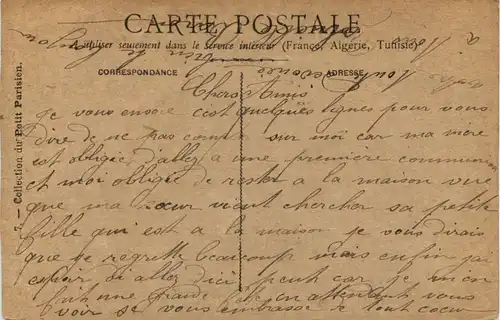 CARTE POSTALE
A utiliser seulement dans le service intérieur (France, Algérie, Tunisie)
CORRESPONDANCE
ADRESSE
7. — Collection du Petit Parisien.
Chers Amis
Je vous envoie c'est quelques lignes pour vous
dire de ne pas compter sur moi car ma mere
est obligie d'aller a une première communion
et moi obligie de rester a la maison vue
que ma sœur vient chercher sa petite
fille qui est a la maison je vous dirais
que je regrette beaucoup mais enfin j'ai
espoir d'i allez d'ici peut car je m'en
fait une grande en attendant vous
voir je vous embrasse de tout cœur